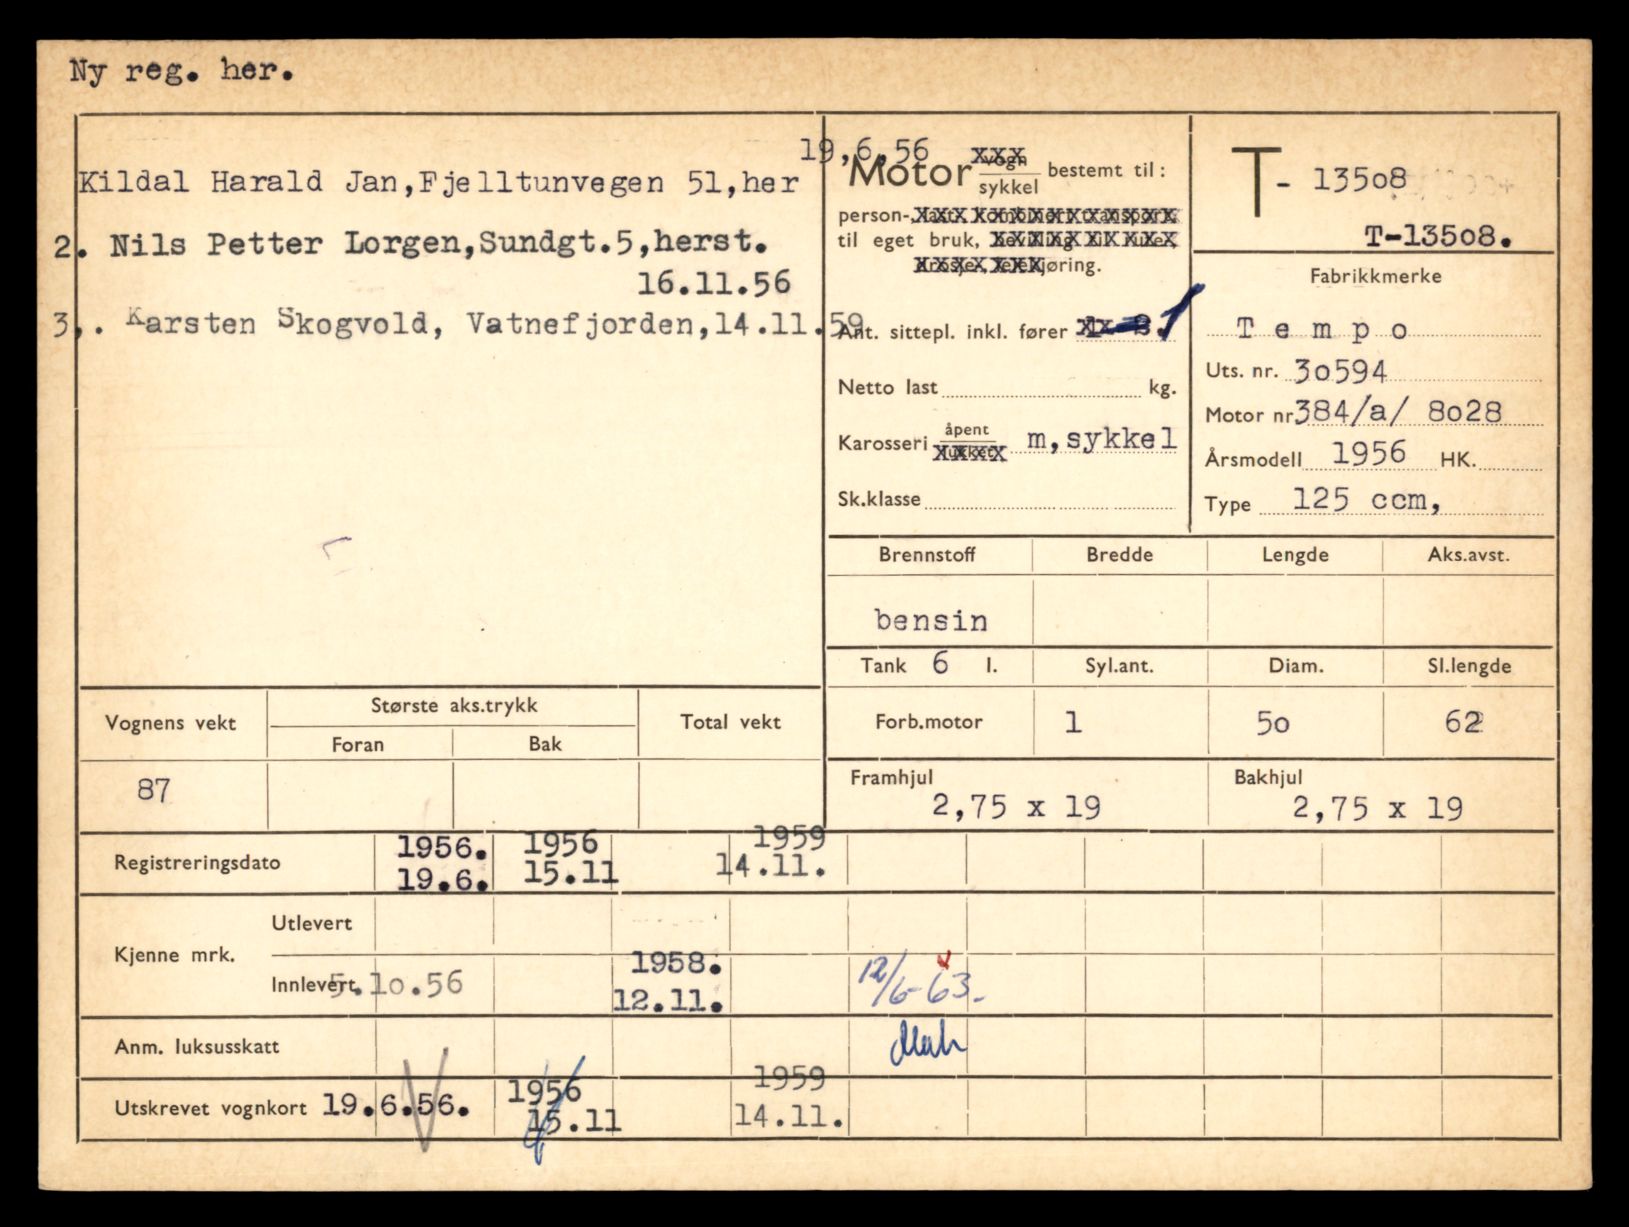 Ny reg. her.
19.6.56
Kildal Harald Jan, Fjelltunvegen 51, her
2. Nils Petter Lorgen, Sundgt.5, herst.
16.11.56
3,. Karsten Skogvold, Vatnefjorden, 14.11.59
Motor vogn sykkel bestemt til:
person-,
til eget bruk,
kjøring.
Ant. sittepl. inkl. fører 1
Netto last kg.
Karosseri åpent lukket m,sykkel
Sk.klasse
T- 13508
T-13508.
Fabrikkmerke
Tempo
Uts. nr. 30594
Motor nr 384/a/ 8028
Årsmodell 1956 HK.
Type 125 ccm,
Brennstoff Bredde Lengde Aks.avst.
bensin
Tank 6 l. Syl.ant. Diam. Sl.lengde
Forb.motor 1 50 62
Framhjul Bakhjul
2,75 x 19 2,75 x 19
Vognens vekt Største aks.trykk Total vekt
Foran Bak
87
1956. 1956 1959
Registreringsdato 19.6. 15.11 14.11.
Kjenne mrk. Utlevert
Innlevert 5.10.56 1958. 12.11. 12/6-63.
Anm. luksusskatt
Utskrevet vognkort 19.6.56. 1956 15.11 1959 14.11.